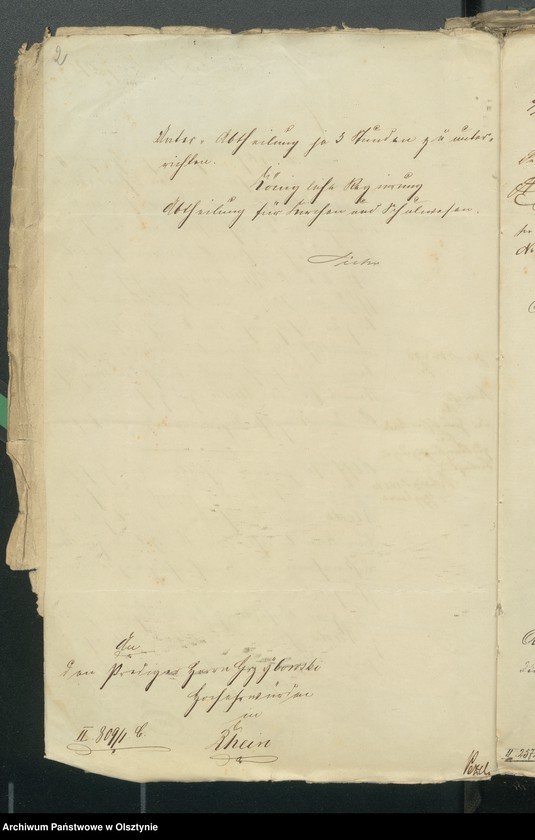 2
Unter-Abtheilung je 3 Stunden zu unter-
richten.
Königliche Regierung
Abtheilung für Kirchen und Schulwesen.
An
den Prediger Herrn Grzybowski
Hochehrwürden
in
Rhein
II. 809/1 C.
II 257
Archiwum Państwowe w Olsztynie